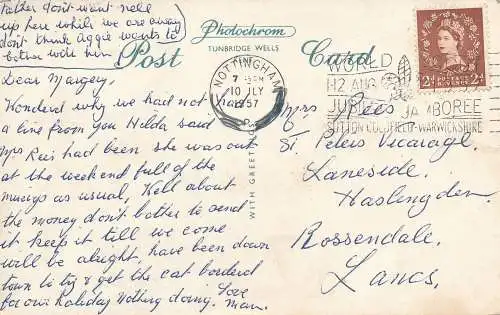 Father don't want Nell
up here while we are away
don't think Aggie wants to
bother with him
Photochrom
TUNBRIDGE WELLS
Post Card
NOTTINGHAM
7 PM
10 JLY
1957
WORLD
1-12 AUG
JUBILEE JAMBOREE
SUTTON COLDFIELD-WARWICKSHIRE
2D 2D
POSTAGE REVENUE
Dear Margery,
Wonderd why we had not had
a line from you Hilda said
Mrs Reis had been she was out
at the weekend full of the
miserys as usual, Well about
the money don't bother to send
it keep it till we come
will be alright, have been down
town to try & get the cat borderd
for our holiday nothing doing. Love
Mam.
WITH GREETINGS
Mrs Rees
St Peters Vicarage
Laneside.
Haslingden
Rossendale.
Lancs.